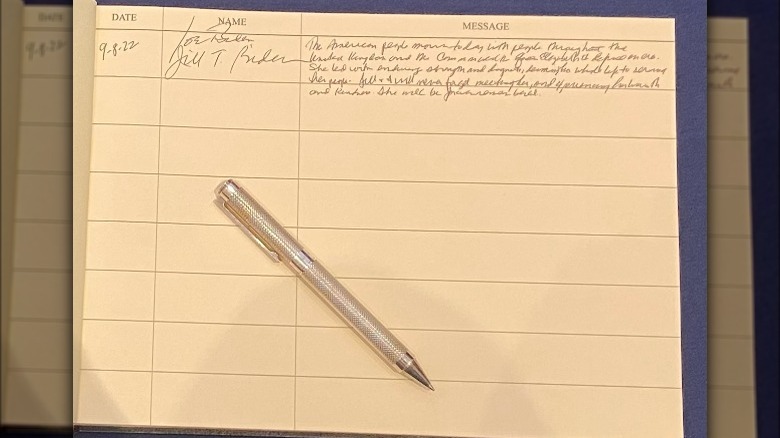 DATE NAME MESSAGE
9.8.22 Joe Biden
Jill T. Biden
The American people mourn today with people throughout the
United Kingdom and the Commonwealth Queen Elizabeth
She led with enduring strength and dignity, devoting her whole life to serving
her people. Jill & I will never forget meeting her, and experiencing her warmth
and kindness. She will be